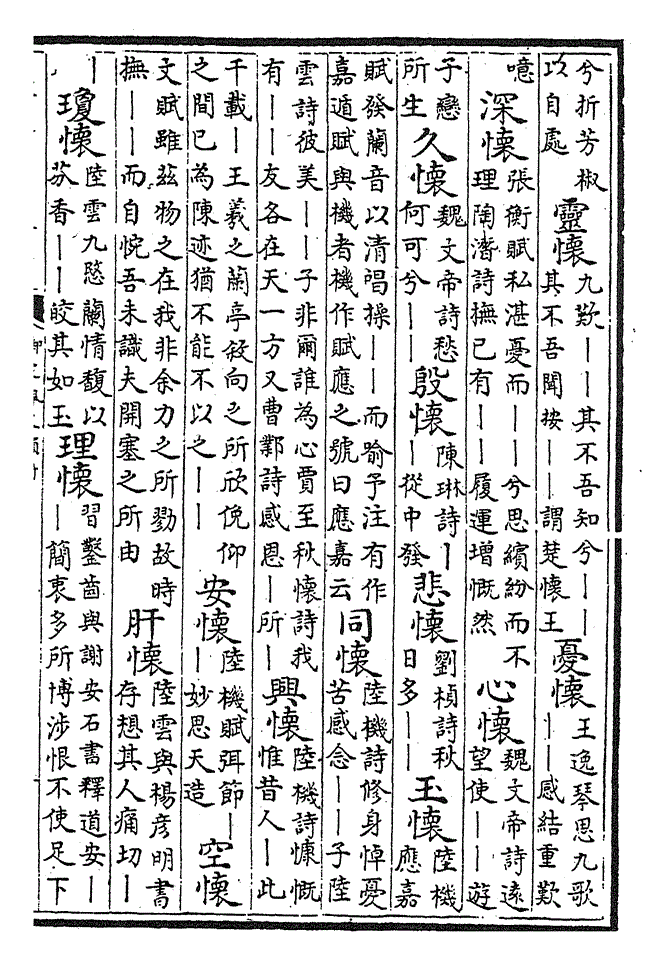 兮折芳椒以自處 靈懷 九歎——其不吾知兮——其不吾聞按——謂楚懷王 憂懷 王逸琴思九歌——感結重歎
噫 深懷 張衡賦私湛憂而——兮思繽紛而不理陶潛詩撫已有——履運增慨然 心懷 魏文帝詩遠望使——遊
子戀所生 久懷 魏文帝詩愁何可兮—— 殷懷 陳琳詩——從中發 悲懷 劉楨詩秋日多—— 玉懷 陸機應嘉
賦發蘭音以清唱操——而喻予注有作嘉遁賦與機者機作賦應之號曰應嘉云 同懷 陸機詩修身悼憂苦感念——子陸
雲詩彼美——子非爾誰為心賈至秋懷詩我有——友各在天一方又曹鄴詩感恩—所— 興懷 陸機詩慷慨惟昔人—此
千載—王羲之蘭亭敘向之所欣俛仰之間已為陳迹猶不能不以之—— 安懷 陸機賦弭節——妙思天造 空懷
文賦雖茲物之在我非余力之所勠故時撫——而自惋吾未識夫開塞之所由 肝懷 陸雲與楊彥明書存想其人痛切—
— 瓊懷 陸雲九愍蘭情馥以芬香——皎其如玉 理懷 習鑿齒與謝安石書釋道安——簡衷多所博涉恨不使足下